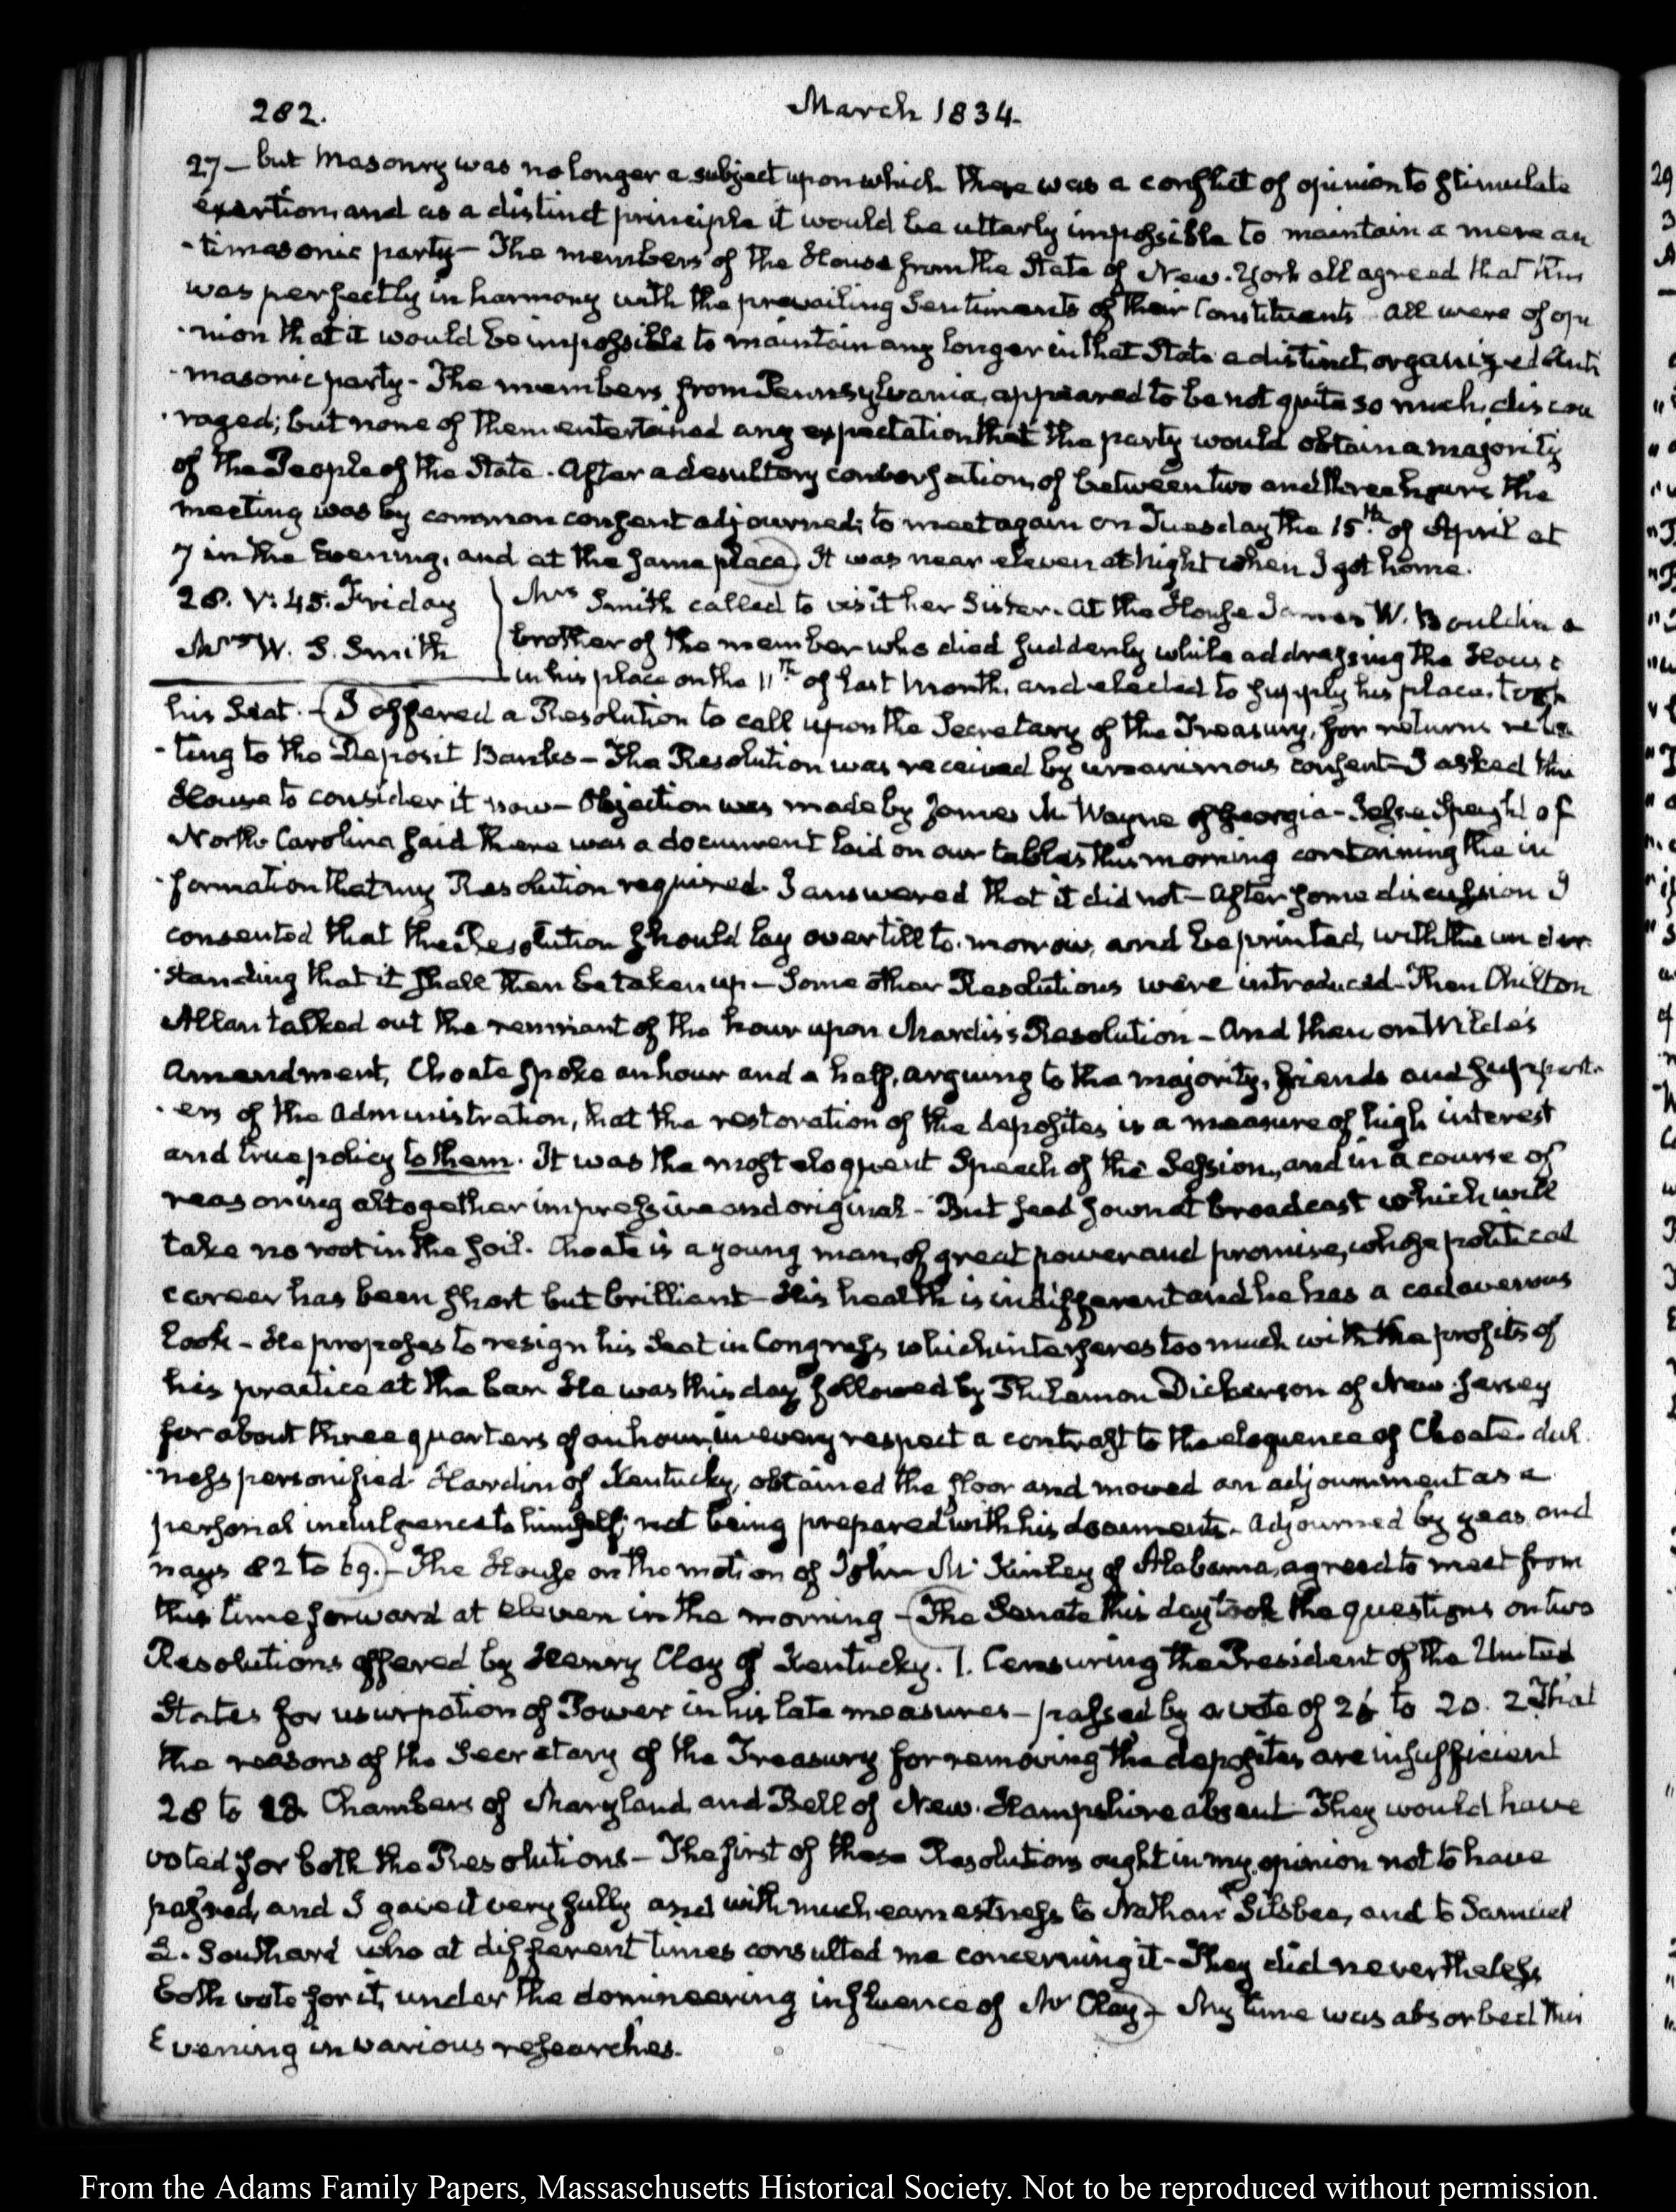 282. March 1834.
27 — but Masonry was no longer a subject upon which there was a conflict of opinion to stimulate
exertion, and as a distinct principle it would be utterly impossible to maintain a mere an
-timasonic party — The members of the House from the State of New-York all agreed that this
was perfectly in harmony with the prevailing Sentiments of their Constituents all were of opi
-nion that it would be impossible to maintain any longer in that State a distinct, organized Anti
-masonic party - The members from Pennsylvania, appeared to be not quite so much, discou
-raged; but none of them entertained any expectation that the party would obtain a majority
of the People of the State. After a desultory conversation, of between two and three hours the
meeting was by common consent adjourned; to meet again on Tuesday the 15th. of April at
7 in the Evening, and at the same place. It was near eleven at night when I got home.
28. V: 45. Friday
Mrs W. S. Smith
Mrs Smith called to visit her Sister. At the House James W. Bouldin a
brother of the member who died suddenly while addressing the House
in his place on the 11th of last Month, and elected to supply his place, took
his Seat. - I offered a Resolution to call upon the Secretary of the Treasury, for returns rela
-ting to the Deposit Banks — The Resolution was received by unanimous consent — I asked the
House to consider it now — Objection was made by James M. Wayne of Georgia - Jesse Speight of
North Carolina said there was a document laid on our tables this morning containing the in
-formation that my Resolution required. I answered that it did not — After some discussion I
consented that the Resolution should lay over till to-morrow, and be printed, with the under
-standing that it shall then be taken up — Some other Resolutions were introduced - Then Chilton
Allan talked out the remnant of the hour upon Mardis's Resolution — And then on Wilde's
Amendment, Choate spoke an hour and a half, arguing to the majority, friends and support-
-ers of the Administration, that the restoration of the deposites is a measure of high interest
and true policy to them. It was the most eloquent Speech of the Session, and in a course of
reasoning altogether impressive and original - But seed sown at broadcast which will
take no root in the soil. Choate is a young man, of great power and promise, whose political
career has been short but brilliant — His health is indifferent and he has a cadaverous
look — He proposes to resign his Seat in Congress which interferes too much with the profits of
his practice at the bar. He was this day followed by Philemon Dickerson of New-Jersey
for about three quarters of an hour, in every respect a contrast to the eloquence of Choate. dul-
-ness personified. Hardin of Kentucky, obtained the floor and moved an adjournment as a
personal indulgence to himself; not being prepared with his documents. Adjourned by yeas and
nays 82 to 69. — The House on the motion of John McKinley of Alabama, agreed to meet from
this time forward at eleven in the morning — The Senate this day took the questions on two
Resolutions offered by Henry Clay of Kentucky. 1. Censuring the President of the United
States for usurpation of Power in his late measures — passed by a vote of 26 to 20. 2 That
the reasons of the Secretary of the Treasury for removing the deposites are insufficient
28 to 18. Chambers of Maryland, and Bell of New-Hampshire absent — They would have
voted for both the Resolutions — The first of these Resolutions ought in my opinion not to have
passed, and I gave it very fully and with much earnestness to Nathan Silsbee, and to Samuel
L. Southard who at different times consulted me concerning it — They did nevertheless
both vote for it, under the domineering influence of Mr Clay — My time was absorbed this
Evening in various researches.
From the Adams Family Papers, Massachusetts Historical Society. Not to be reproduced without permission.